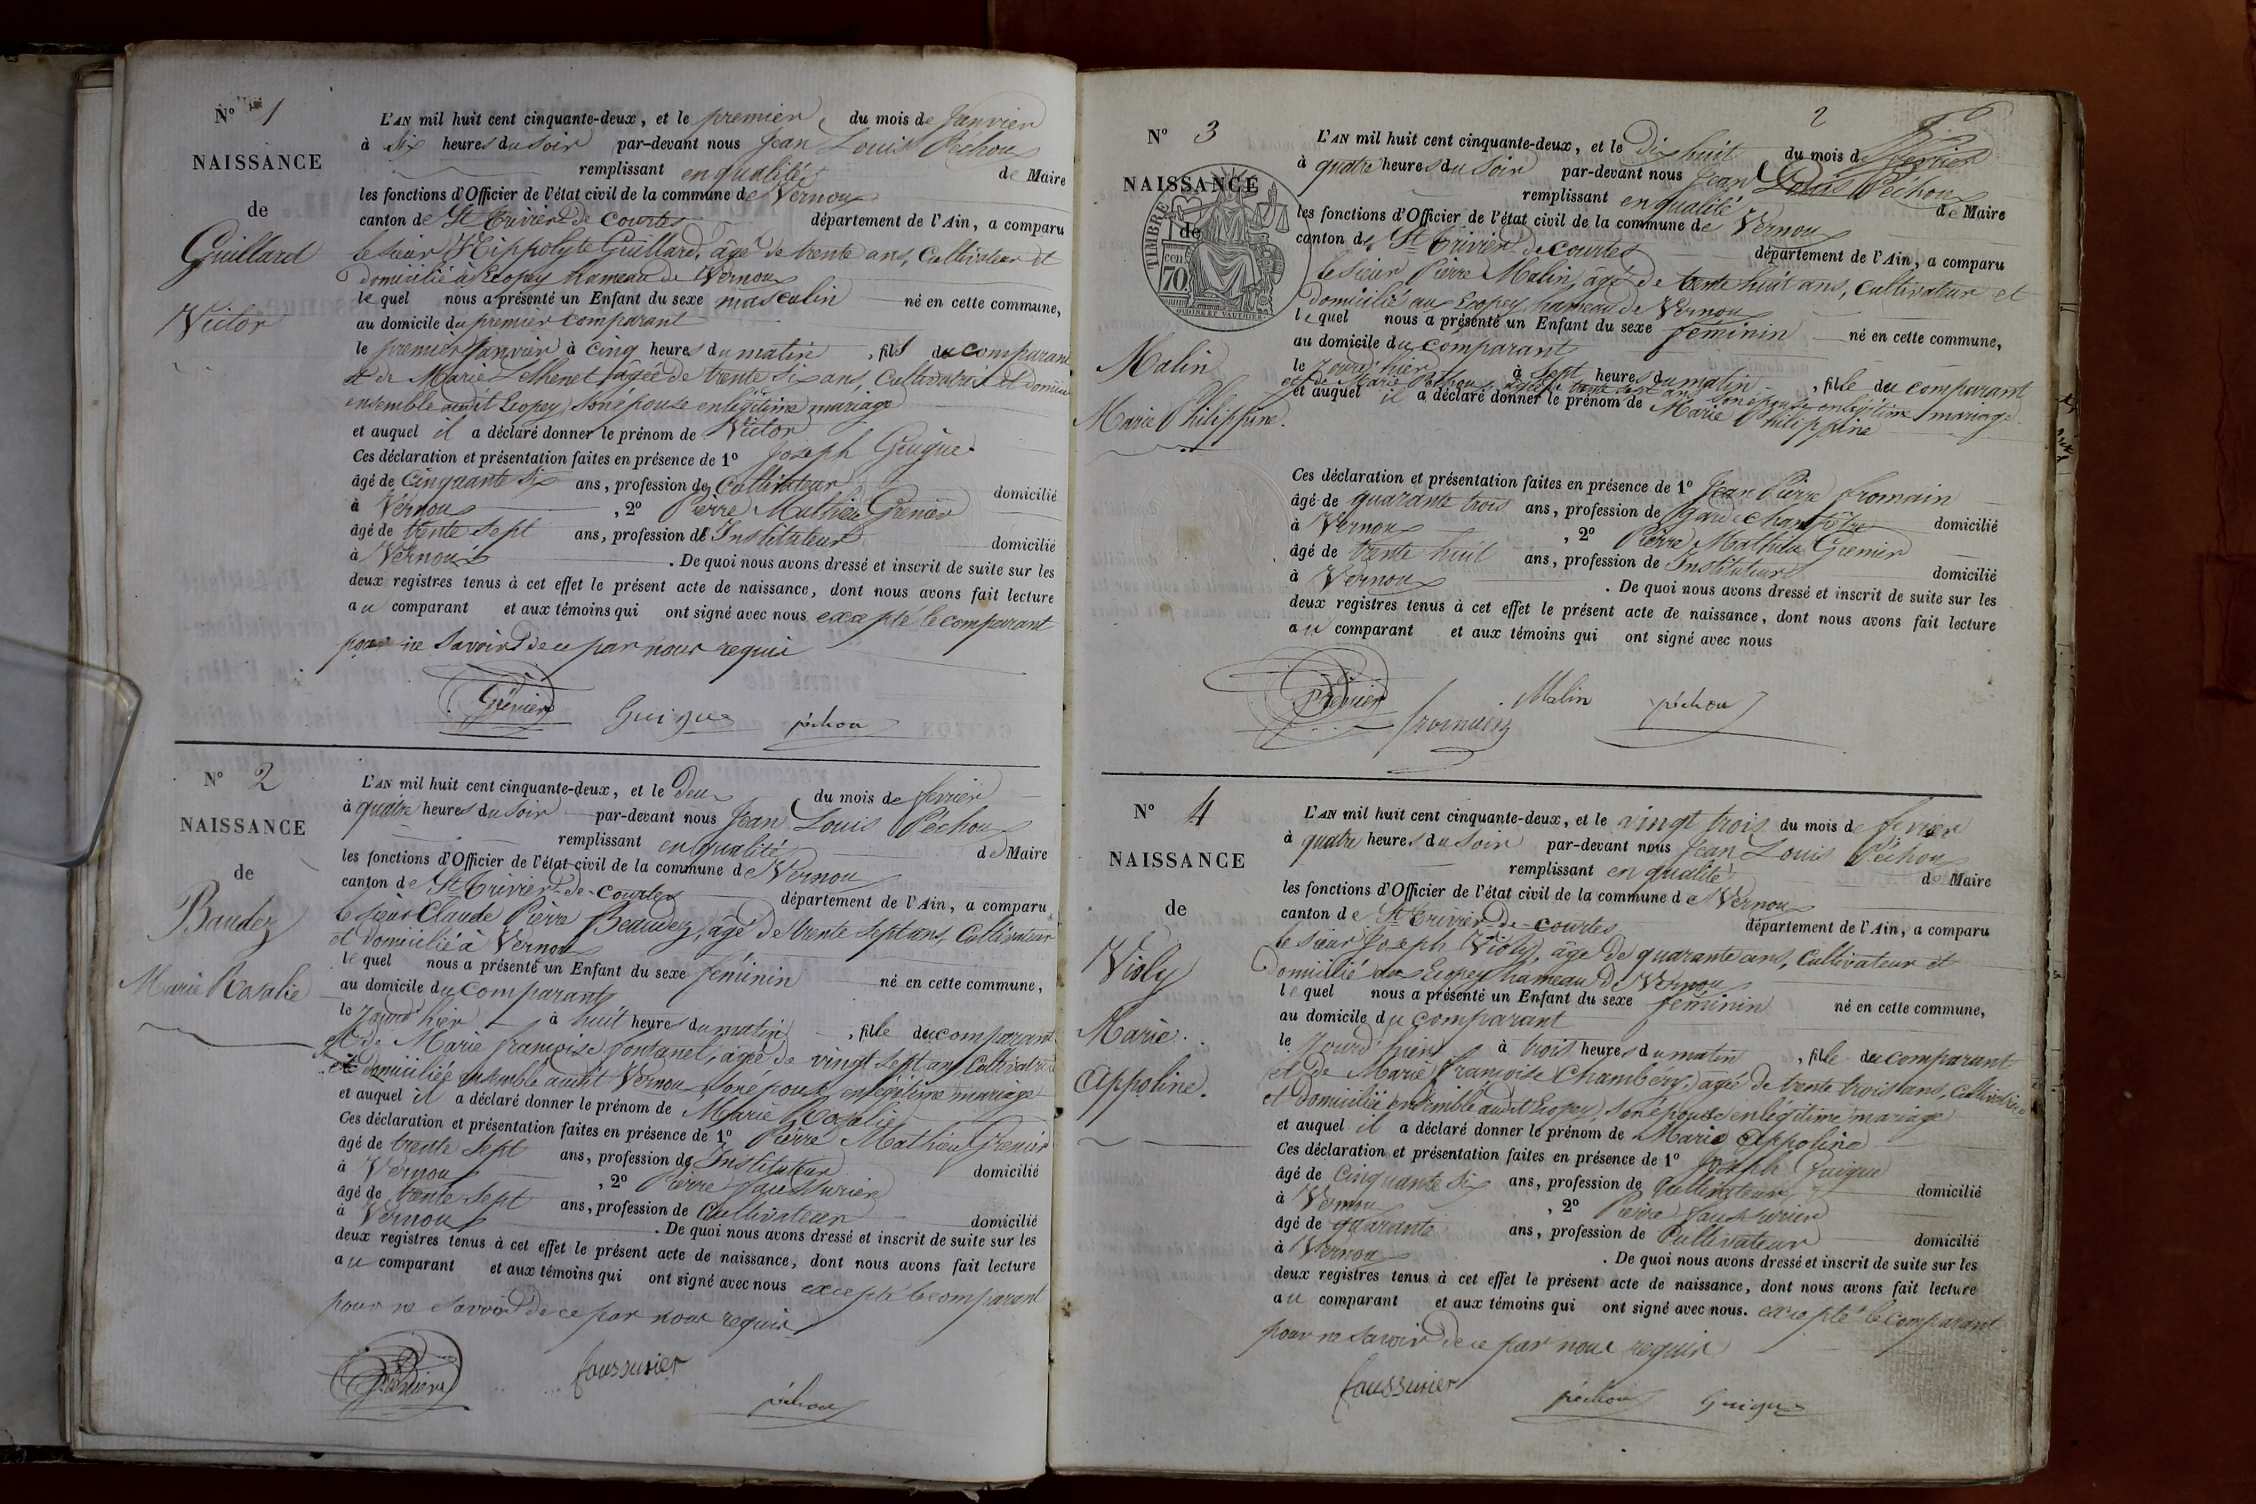 N° 1
NAISSANCE
de
Guillard
Victor
L'AN mil huit cent cinquante-deux, et le premier du mois de Janvier
à six heures du soir par-devant nous Jean Louis Péchoux
remplissant en qualité de Maire
les fonctions d'Officier de l'état civil de la commune de Vernoux
canton de St Trivier de Courtes département de l'Ain, a comparu
le sieur Hippolyte Guillard, âgé de trente ans, Cultivateur et
domicilié à Ecopey hameau de Vernoux
lequel nous a présenté un Enfant du sexe masculin né en cette commune,
au domicile du premier comparant
le premier Janvier à cinq heures du matin, fils du comparant
et de Marie Thenet âgée de trente six ans, Cultivatrice et domiciliée
ensemble audit Ecopey son épouse en légitime mariage
et auquel il a déclaré donner le prénom de Victor
Ces déclaration et présentation faites en présence de 1° Joseph Guigue
âgé de Cinquante six ans, profession de Cultivateur domicilié
à Vernoux, 2° Pierre Mathieu Grenier
âgé de trente sept ans, profession de Instituteur domicilié
à Vernoux. De quoi nous avons dressé et inscrit de suite sur les
deux registres tenus à cet effet le présent acte de naissance, dont nous avons fait lecture
au comparant et aux témoins qui ont signé avec nous excepté le comparant
pour ne savoir de ce par nous requis
Grenier Guigue péchoux
N° 2
NAISSANCE
de
Baudez
Marie Rosalie
L'AN mil huit cent cinquante-deux, et le deux du mois de fevrier
à quatre heures du soir par-devant nous Jean Louis Péchoux
remplissant en qualité de Maire
les fonctions d'Officier de l'état civil de la commune de Vernoux
canton de St Trivier-de-Courtes département de l'Ain, a comparu
le sieur Claude Pierre Beaudez, âgé de trente sept ans, Cultivateur
et domicilié à Vernoux
lequel nous a présenté un Enfant du sexe féminin né en cette commune,
au domicile du comparant
le jourd'hier à huit heures du matin, fille du comparant
et de Marie françoise fontanel, âgée de vingt sept ans Cultivatrice
et domiciliée ensemble audit Vernoux son épouse en légitime mariage
et auquel il a déclaré donner le prénom de Marie Rosalie
Ces déclaration et présentation faites en présence de 1° Pierre Mathieu Grenier
âgé de trente sept ans, profession de Instituteur domicilié
à Vernoux, 2° Pierre faussurier
âgé de trente sept ans, profession de Cultivateur domicilié
à Vernoux. De quoi nous avons dressé et inscrit de suite sur les
deux registres tenus à cet effet le présent acte de naissance, dont nous avons fait lecture
au comparant et aux témoins qui ont signé avec nous excepté le comparant
pour ne savoir de ce par nous requis
Grenier faussurier péchoux
2
N° 3
NAISSANCE
de
TIMBRE
70
Malin
Marie Philippine.
L'AN mil huit cent cinquante-deux, et le Dix huit du mois de fevrier
à quatre heures du soir par-devant nous Jean Louis Péchoux
remplissant en qualité de Maire
les fonctions d'Officier de l'état civil de la commune de Vernoux
canton de St Trivier de Courtes département de l'Ain, a comparu
le sieur Pierre Malin, âgé de trente huit ans, Cultivateur et
domicilié au Ecopey hameau de Vernoux
lequel nous a présenté un Enfant du sexe féminin né en cette commune,
au domicile du comparant
le jourd'hier à sept heures du matin, fille du comparant
et de Marie Péchoux, âgée de trente sept ans son épouse en légitime mariage
et auquel il a déclaré donner le prénom de Marie Philippine
Ces déclaration et présentation faites en présence de 1° Jean Pierre fromain
âgé de quarante trois ans, profession de garde champêtre domicilié
à Vernoux, 2° Pierre Mathieu Grenier
âgé de trente huit ans, profession de Instituteur domicilié
à Vernoux. De quoi nous avons dressé et inscrit de suite sur les
deux registres tenus à cet effet le présent acte de naissance, dont nous avons fait lecture
au comparant et aux témoins qui ont signé avec nous
Grenier Malin péchoux
N° 4
NAISSANCE
de
Violy
Marie
Appoline.
L'AN mil huit cent cinquante-deux, et le vingt trois du mois de fevrier
à quatre heures du soir par-devant nous Jean Louis Péchoux
remplissant en qualité de Maire
les fonctions d'Officier de l'état civil de la commune de Vernoux
canton de St Trivier-de-Courtes département de l'Ain, a comparu
le sieur Joseph Violy, âgé de quarante ans, Cultivateur et
domicilié au Ecopey hameau de Vernoux
lequel nous a présenté un Enfant du sexe féminin né en cette commune,
au domicile du comparant
le jourd'hier à trois heures du matin, fille du comparant
et de Marie françoise Chambéry, âgée de trente trois ans, Cultivatrice
et domiciliée ensemble audit Ecopey son épouse en légitime mariage
et auquel il a déclaré donner le prénom de Marie Appoline
Ces déclaration et présentation faites en présence de 1° Joseph Guigue
âgé de Cinquante six ans, profession de Cultivateur domicilié
à Vernoux, 2° Pierre faussurier
âgé de quarante ans, profession de Cultivateur domicilié
à Vernoux. De quoi nous avons dressé et inscrit de suite sur les
deux registres tenus à cet effet le présent acte de naissance, dont nous avons fait lecture
au comparant et aux témoins qui ont signé avec nous. excepté le comparant
pour ne savoir de ce par nous requis
faussurier péchoux Guigue